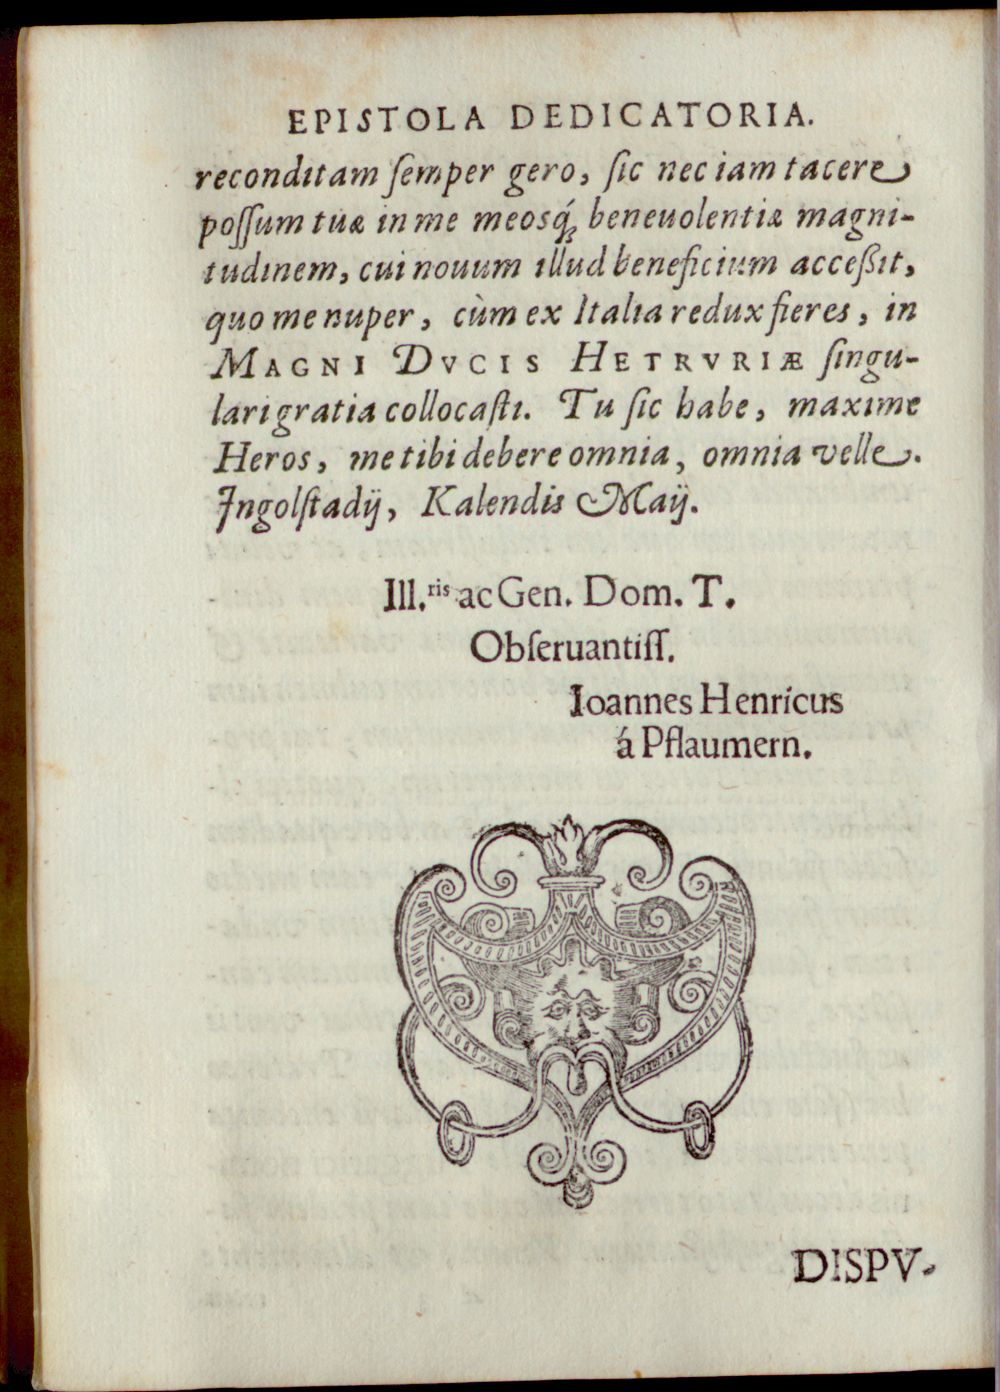 EPISTOLA DEDICATORIA.
reconditam ſemper gero, ſic nec iam tacere
poſſum tuæ in me meosq́; beneuolentiæ magni-
tudinem, cui nouum illud beneficium acceßit,
quo me nuper, cùm ex Italia redux fieres, in
MAGNI DVCIS HETRVRIÆ ſingu-
lari gratia collocaſti. Tu ſic habe, maxime
Heros, me tibi debere omnia, omnia velle.
Ingolſtadij, Kalendis Maij.
Ill.ris ac Gen. Dom. T.
Obſeruantiſſ.
Ioannes Henricus
á Pflaumern.
DISPV-